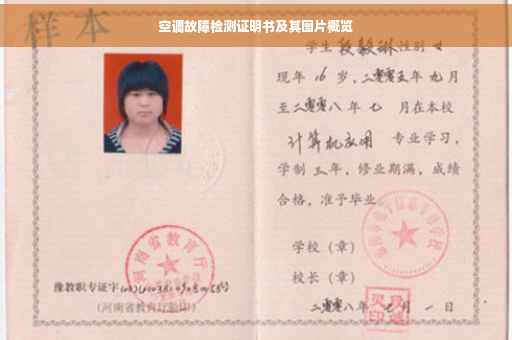 空调故障检测证明书及其图片概览
样本
学生 段毅琳 性别 女
现年 16 岁,二零零五年 九 月
至二零零八年 七 月在本校
计算机应用 专业学习,
学制 三 年,修业期满,成绩
合格,准予毕业。
学校(章)
校长(章)
二零零八年 七 月 一 日
河南省教育厅
豫教职专证字
(河南省教育厅验印)